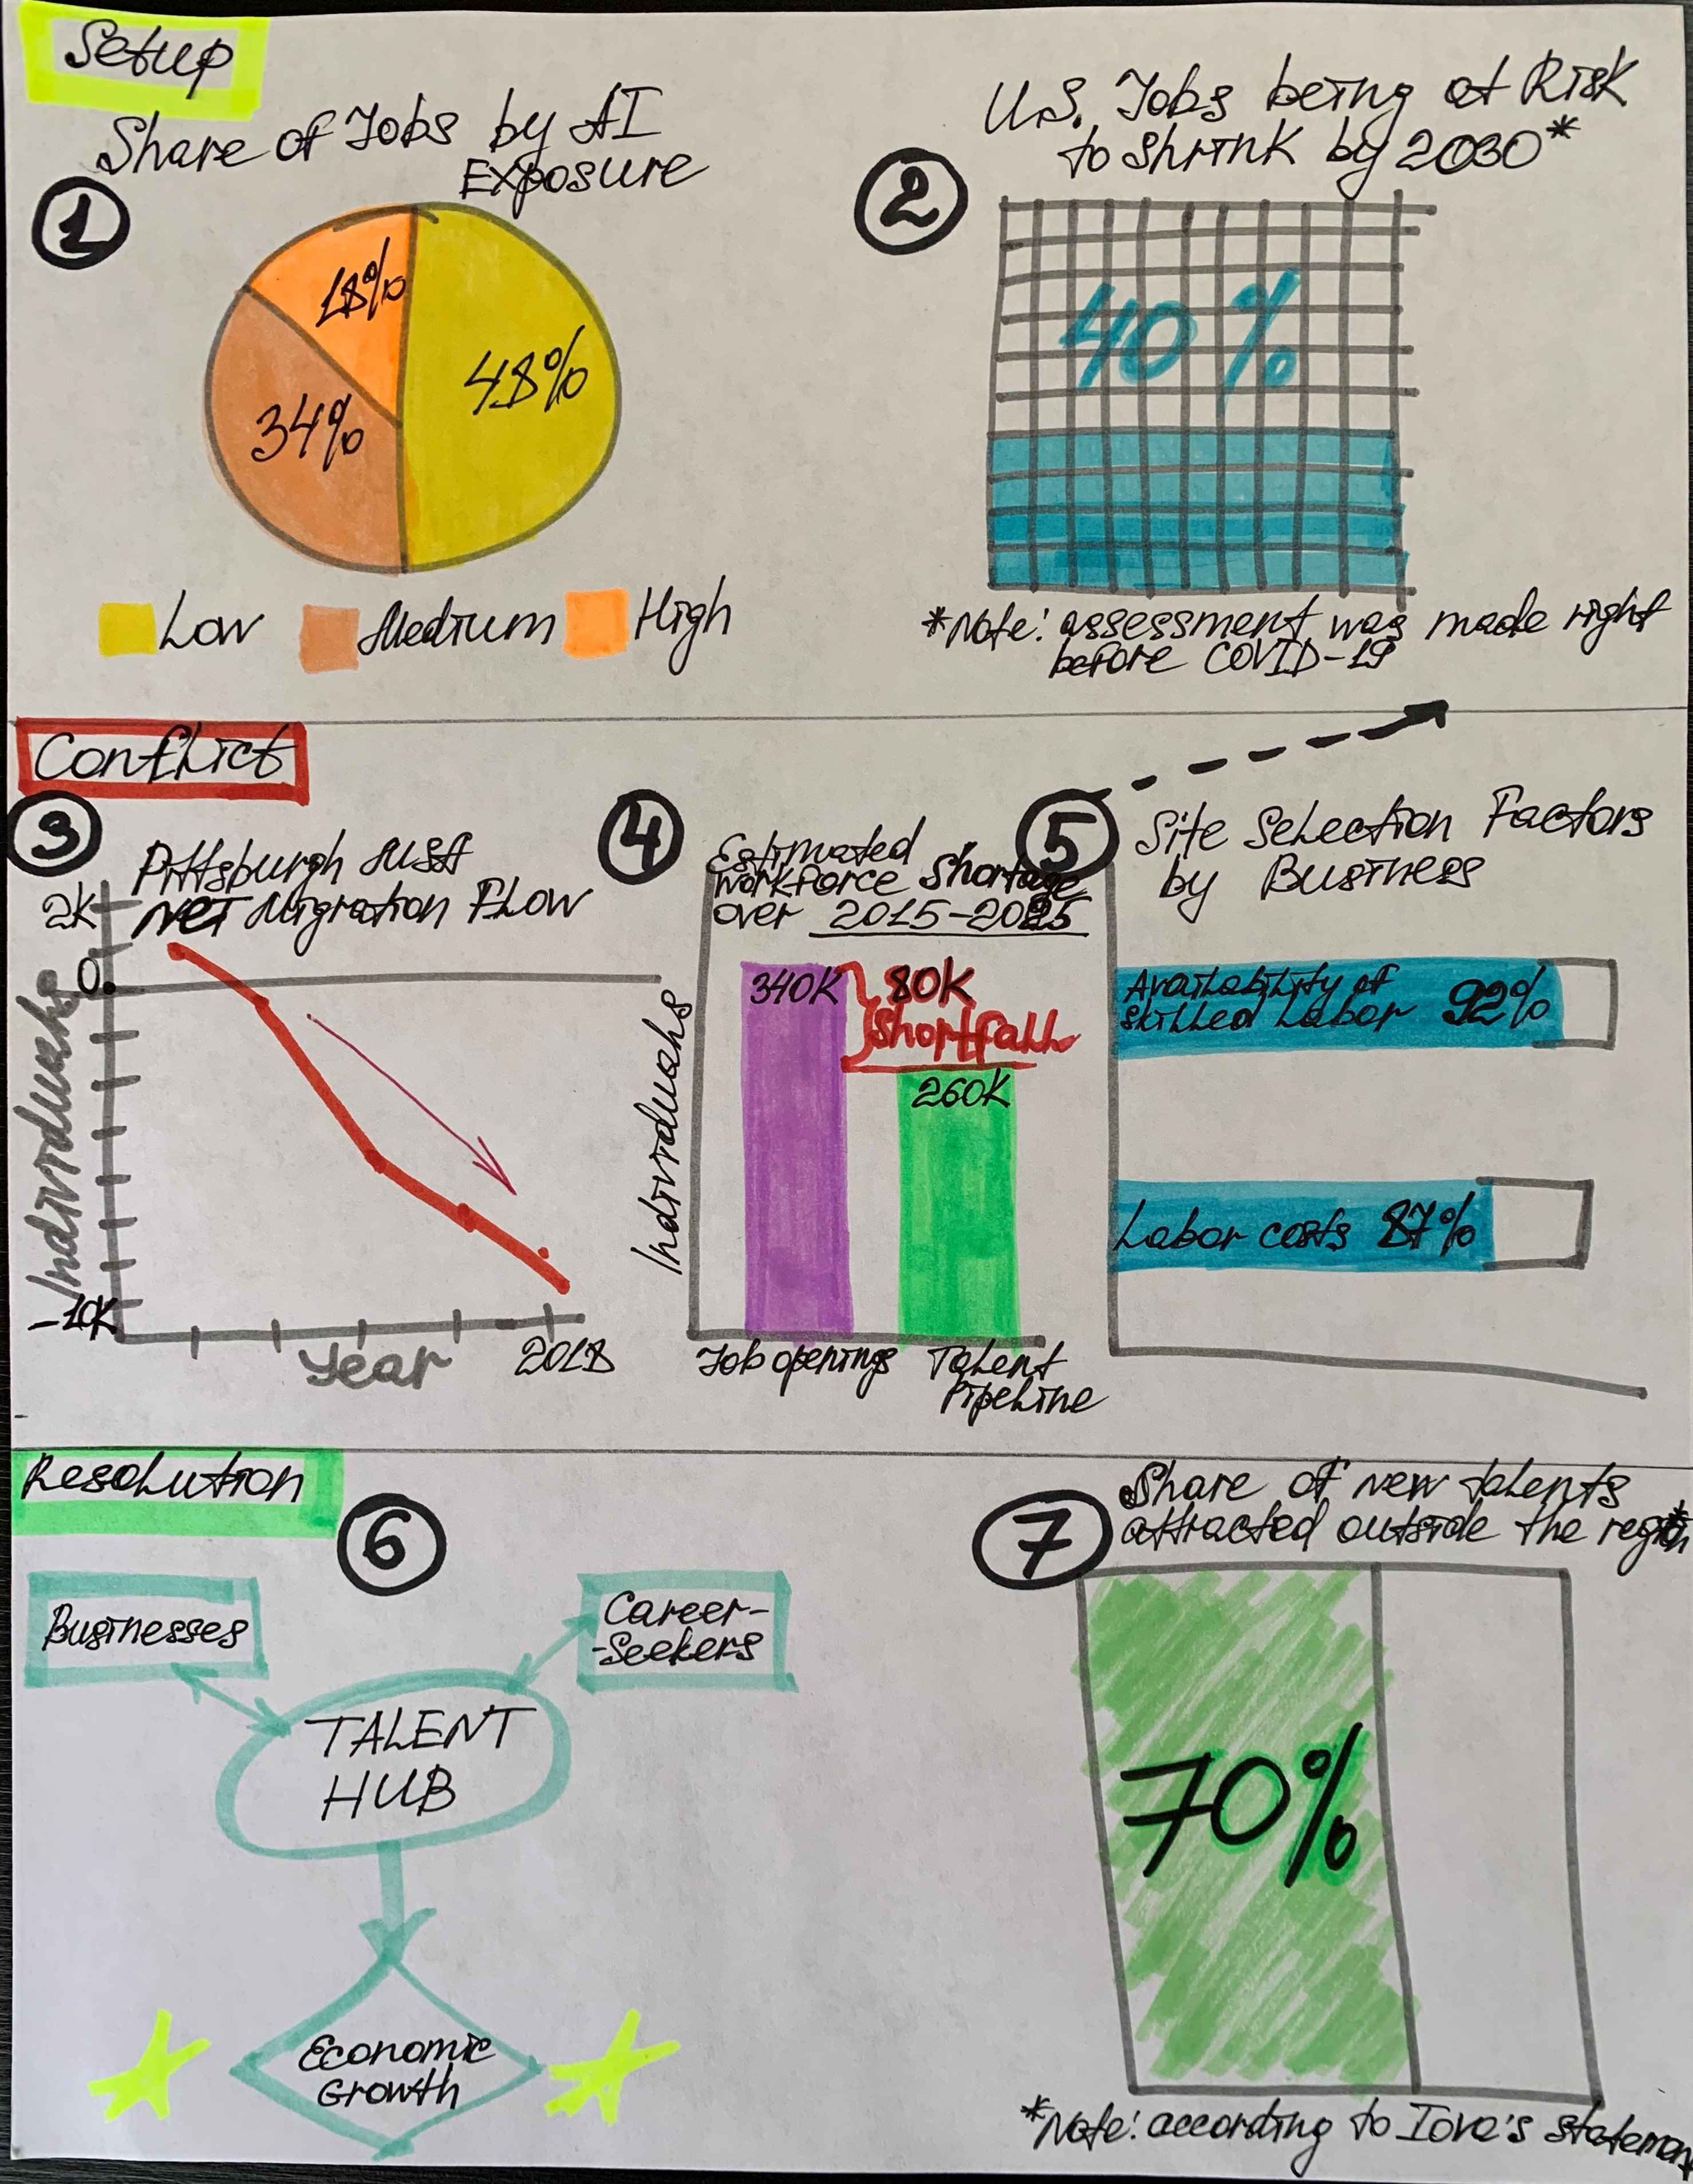 Setup
Share of Jobs by AI
Exposure
1
18%
48%
34%
Low
Medium
High
U.S. Jobs being at Risk
to shrink by 2030*
2
40%
*Note: assessment was made right
before COVID-19
Conflict
3
Pittsburgh MSA
Net Migration Flow
2K
0
Individuals
-10K
Year
2018
4
Estimated
workforce shortage
over 2015-2025
Individuals
340K
80K
shortfall
260K
Job openings
Talent
Pipeline
5
Site Selection Factors
by Business
Availability of
skilled Labor 92%
Labor costs 87%
Resolution
6
Businesses
Career-
-Seekers
TALENT
HUB
Economic
Growth
7
Share of new talents
attracted outside the region*
70%
*Note: according to